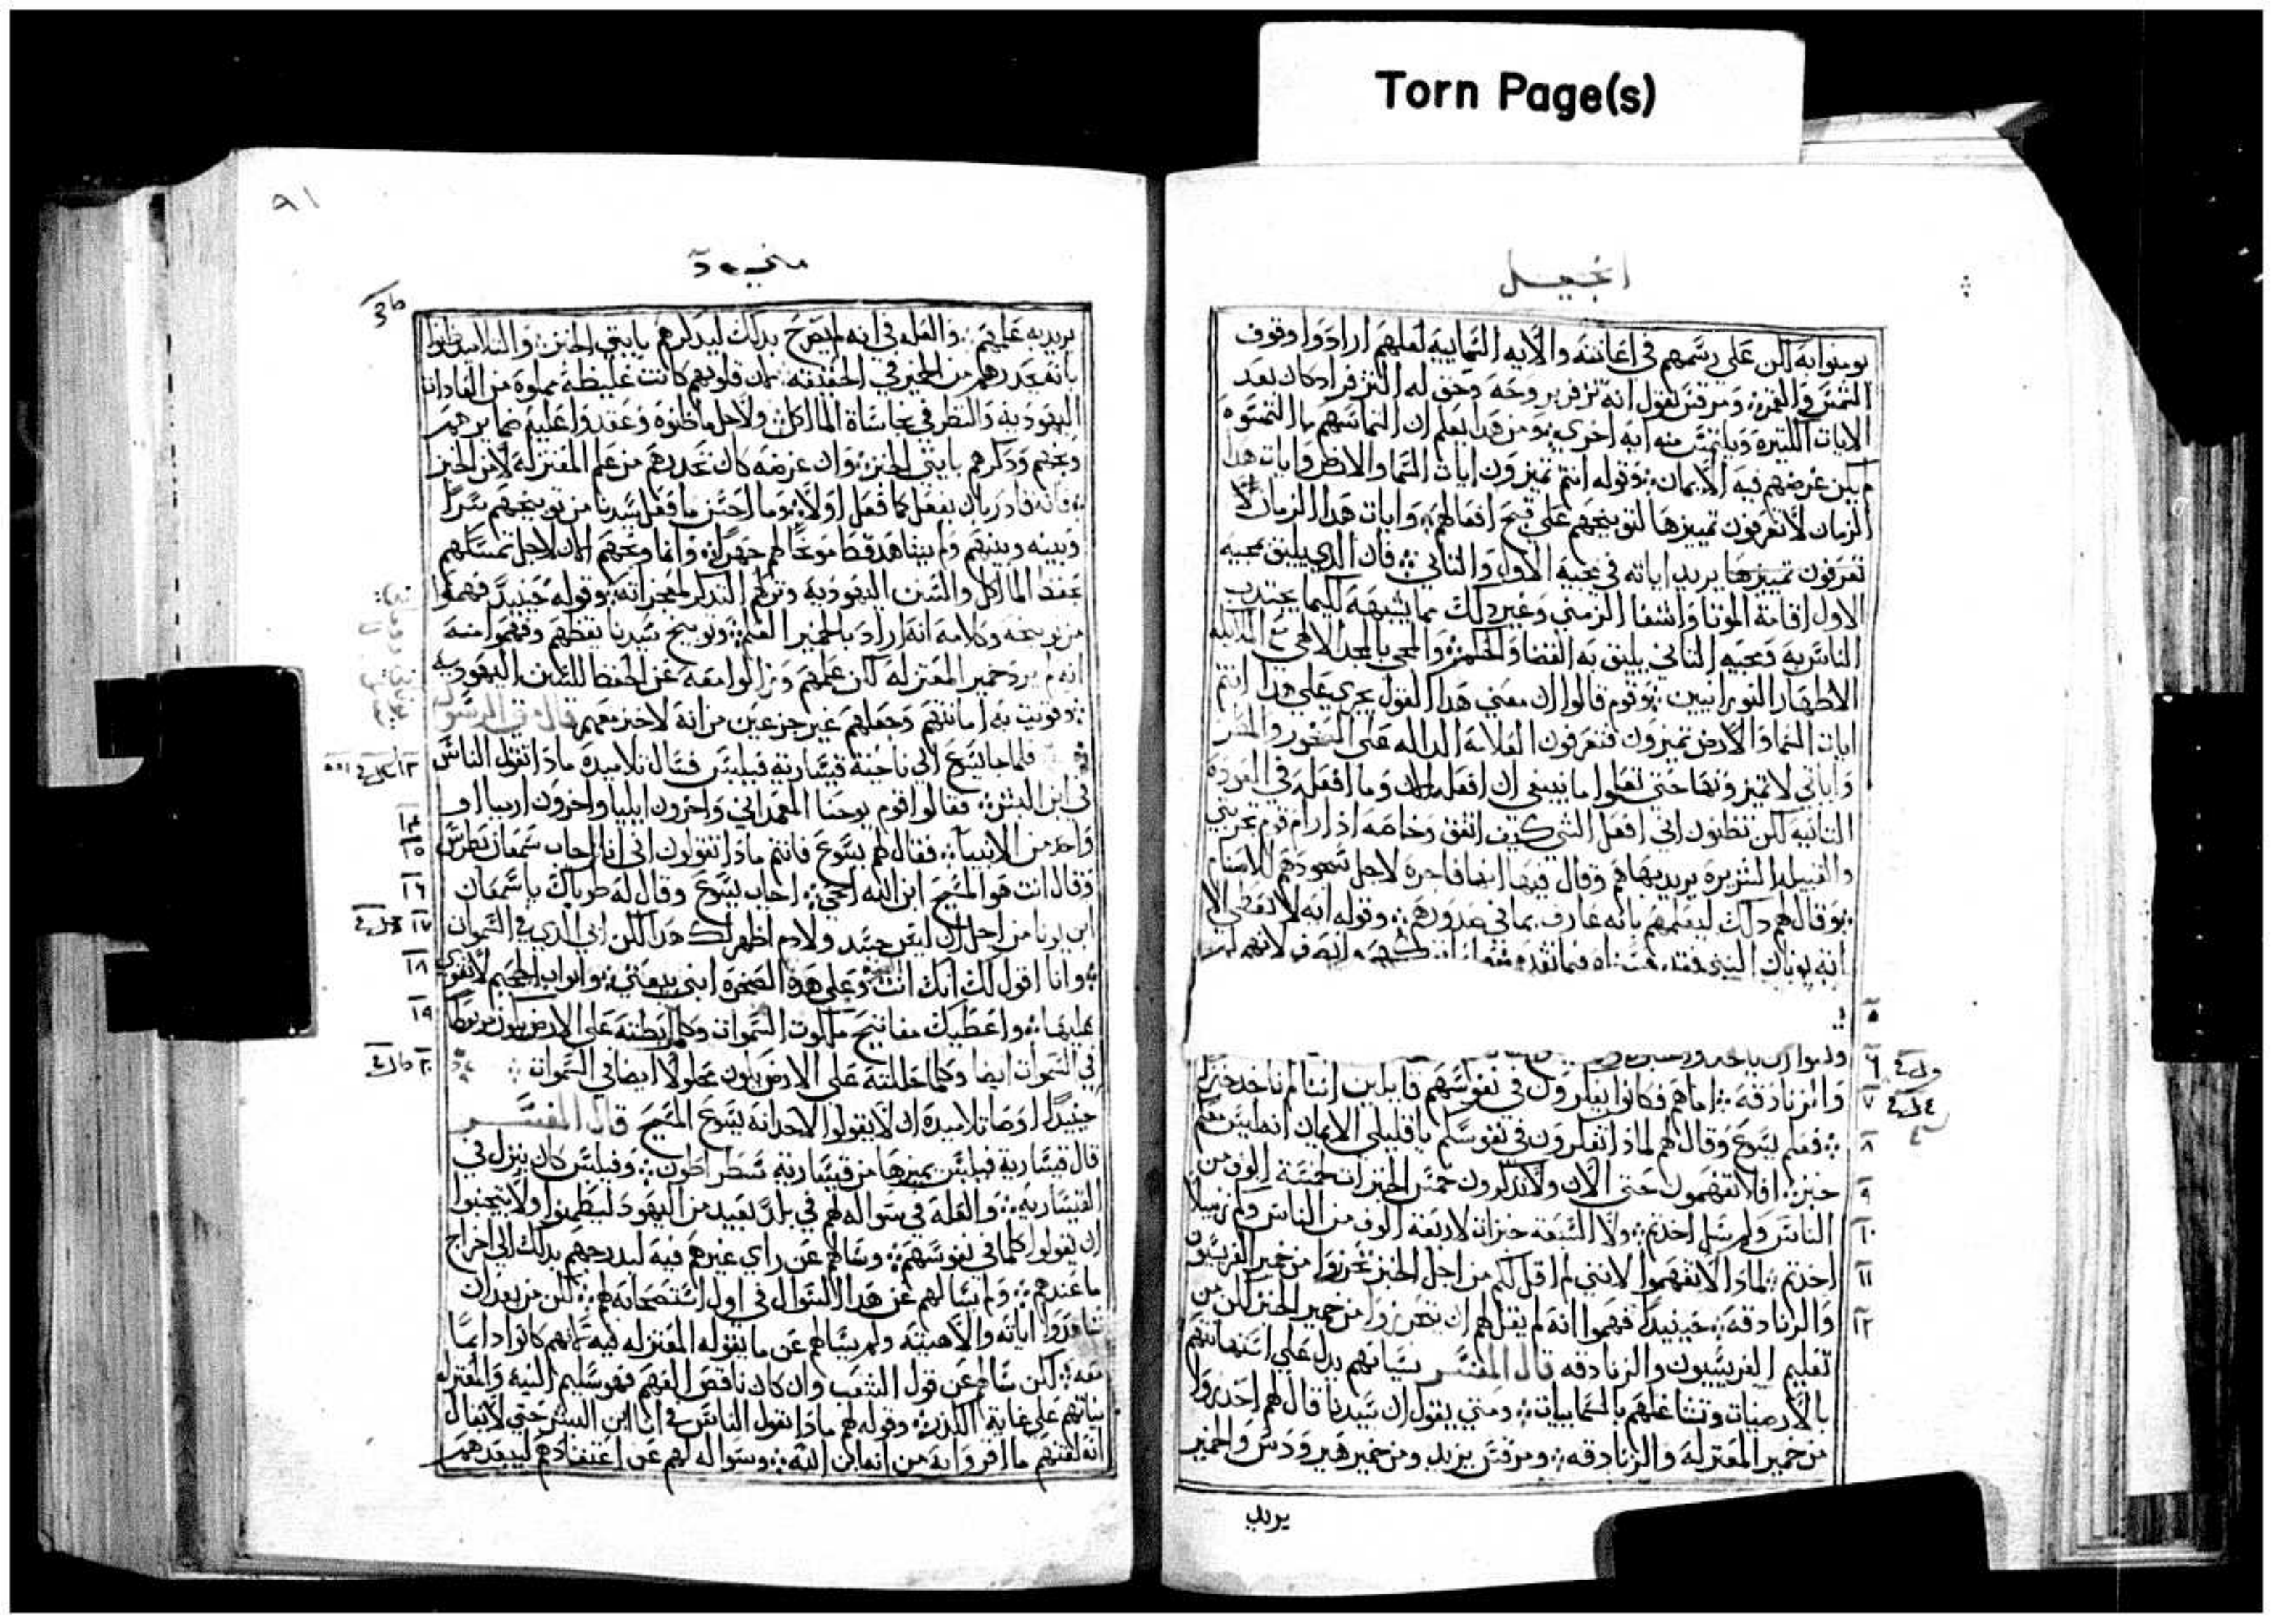 Torn Page(s)
انجيل
يومنوا به لكن على رسمهم في اعانته والايه السماييه لعلهم ارادوا وقوف
الشمس والقمر ومرقس يقول انه تزفر بروحه وحق له التزفر اذ كان بعد
الايات الكثيره ويلتمس منه ايه اخرى ومن هذا يعلم ان التماسهم ما التمسوه
لم يكن غرضهم فيه الايمان وقوله انتم تميزون ايات السما والارض وايات هذا
الزمان لا تعرفون تمييزها لتوبيخهم على قبح افعالهم وايات هذا الزمان لا
تعرفون تمييزها يريد اياته في مجيه الاول والثاني فان الذي يليق بمجيه
الاول اقامة الموتا واشفا الزمني وغير ذلك مما يشبهه لكيما يجتذب
الناس به ومجيه الثاني يليق به القضا والحكم والمجي بالمجد الالهي مع الملايكه
الاطهار النورانيين وقوم قالوا ان معنى هذا القول يجري على هذا انتم
ايات السما والارض تميزون فتعرفون العلامة الداله على الصحو والمطر
واياتي لا تميزونها حتى تعلموا ما ينبغي ان افعله الان وما افعله في العوده
الثانيه لكن تظنون اني افعل الشي كيف اتفق وخاصه اذ ارام قوم تجربتي
والقبيله الشريره يريد بها هم وقال فيها ايضا فاجره لاجل سجودهم للاصنام
وقال لهم ذلك ليعلمهم بانه عارف بما في صدورهم وقوله ايه لا تعطى الا
ايه يونان النبي فقد
وانزنادقه اما هم فكانوا يفكرون في نفوسهم قايلين اننا لم ناخذ خبز
فعلم يسوع وقال لهم لماذا تفكرون في نفوسكم يا قليلي الايمان
خبز افلا تفهمون حتى الان ولا تذكرون خمس الخبزات لخمسة الوف من
الناس وكم سل اخذتم ولا السبعه خبزات لاربعة الوف من الناس وكم زنبيلا
اخذتم لماذا لا تفهموا لانني لم اقل لكم من اجل الخبز تحرزوا من خمير الفريسيون
والزنادقه حينيذا فهموا انه لم يقل لهم ان يتحرزوا من خمير الخبز لكن من
تعليم الفريسيون والزنادقه قال المفسر نسيانهم يدل على استهانتهم
بالارضيات وتشاغلهم بالسماييات ومتى يقول ان سيدنا قال لهم احذروا
من خمير المعتزله والزنادقه ومرقس يزيد ومن خمير هيرودس والخمير
يريد
٥
٦
٧
٨
٩
١٠
١١
١٢
٩١
متى
يريد به علمهم والعله في انه لم يصرح بذلك ليذكرهم بايتي الخبز والتلاميذ ظنوا
بانه يحذرهم من الخبز في الحقيقه لان قلوبهم كانت غليظه مملوه من العادات
اليهوديه والنظر في نجاسات الماكل ولاجل ما ظنوه وعقدوا عليه ضمايرهم
وبخهم وذكرهم بايتي الخبز وان غرضه كان تحذيرهم من علم المعتزله لا من الخبز
فانه قادر بان يفعل كما فعل اولا وما احسن ما فعل سيدنا من توبيخهم سرا
وبينه وبينهم ولم يشاهد قط موبخا لهم جهرا وانما وبخهم الان لاجل تمسكهم
بحفظ الماكل والسنن اليهوديه وتركهم التذكر لمعجزاته وقوله حينيذ فهموا
من توبيخه وكلامه انه اراد بالخمير العلم وتوبيخ سيدنا يقظهم وفهموا منه
انه لم يرد خمير المعتزله لكن علمهم وزالوا معه عن الحفظ للسنن اليهوديه
وقويت به امانتهم وجعلهم غير جزعين من انه لا خبز معهم قال متى الرسول
فلما جا يسوع الى ناحية قيساريه فيلبس فسال تلاميذه ماذا تقول الناس
في ابن البشر فقالوا قوم يوحنا المعمداني واخرون ايليا واخرون ارميا او
واحد من الانبيا فقال لهم يسوع فانتم ماذا تقولون اني انا اجاب سمعان بطرس
وقال انت هو المسيح ابن الله الحي اجاب يسوع وقال له طوباك يا سمعان
ابن يونا من اجل ان ليس جسد ولا دم اظهر لك هذا لكن ابي الذي في السموات
وانا اقول لك انك انت وعلى هذه الصخره ابني بيعتي وابواب الجحيم لا تقوى
عليها واعطيك مفاتيح ملكوت السموات وكلما ربطته على الارض يكون مربوطا
في السموات ايضا وكلما حللته على الارض يكون محلولا ايضا في السموات
حينيذا اوصا تلاميذه ان لا يقولوا لاحد انه يسوع المسيح قال المفسر
قال قيساريه فيلبس يميزها من قيساريه سطراطون وفيلبس كان ينزل في
القيساريه والعله في سواله لهم في بلد بعيد من اليهود ليطمنوا ولا يتجنبوا
ان يقولوا كلما في نفوسهم وسالهم عن راي غيرهم فيه ليدرجهم بذلك الى اخراج
ما عندهم ولم يسالهم عن هذا السوال في اول استصحابه لهم لكن من بعد ان
شاهدوا اياته والاهيته ولم يسالهم عن ما يقوله المعتزله فيه لانهم كانوا دايما
معه لكن سالهم عن قول الشعب وان كان ناقص الفهم فهو سليم النيه والمعتزله
نياتهم على غاية الكدر وقوله لهم ماذا تقول الناس في انا ابن البشر حتى لا يقال
انه لقنهم ما اقروا به من انه ابن الله وسواله لهم عن اعتقادهم ليبعدهم
١٣
١٤
١٥
١٦
١٧
١٨
١٩
٢٠